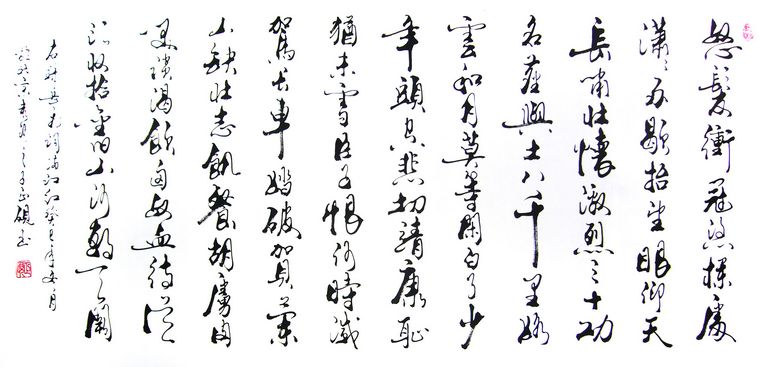 怒髮衝冠憑欄處
瀟々雨歇抬望眼仰天
長嘯壯懷激烈三十功
名塵與土八千里路
雲和月莫等閑白了少
年頭空悲切靖康恥
猶未雪臣子恨何時滅
駕長車踏破賀蘭
山缺壯志飢餐胡虜肉
笑談渴飲匈奴血待從
頭收拾舊山河朝天闕
右錄岳飛詞滿江紅癸巳年月